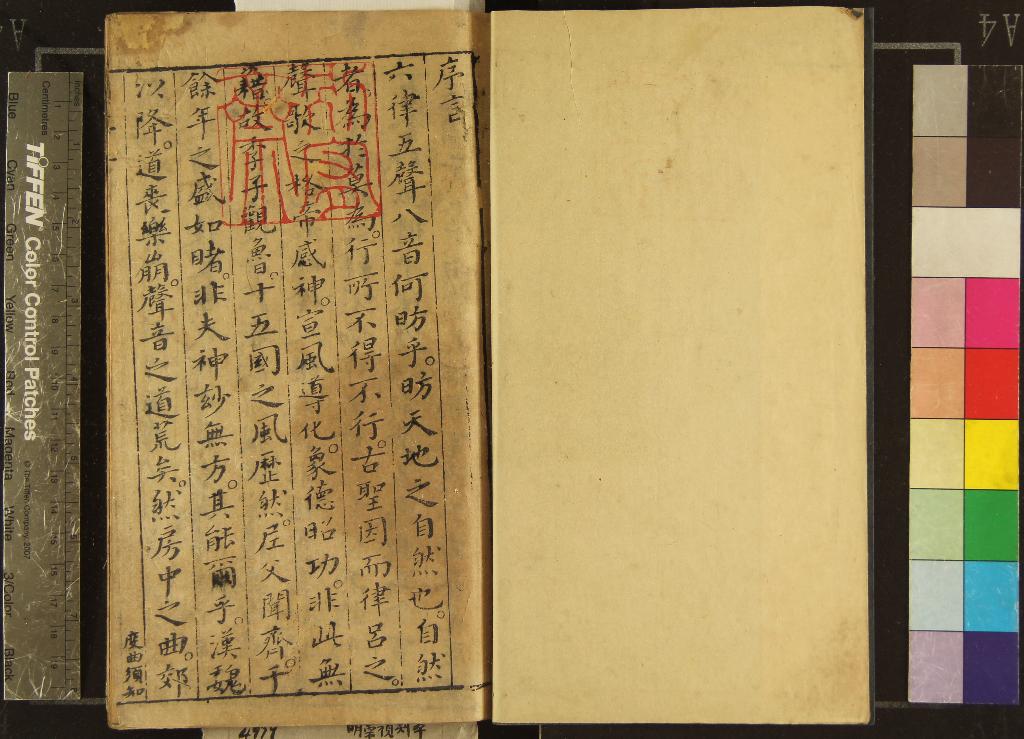 序言
六律五聲八音何昉乎。昉天地之自然也。自然
者。為於莫為。行所不得不行。古聖因而律呂之。
聲歌之。格帝感神。宣風導化。象德昭功。非此無
藉。故季子觀魯。十五國之風歷然。尼父聞齊。千
餘年之盛如睹。非夫神妙無方。其能爾乎。漢魏
以降。道喪樂崩。聲音之道荒矣。然房中之曲。郊
度曲須知
Inches
Centimetres
TIFFEN Color Control Patches
© The Tiffen Company, 2007
Blue
Cyan
Green
Yellow
Red
Magenta
White
3/Color
Black
A4
4979